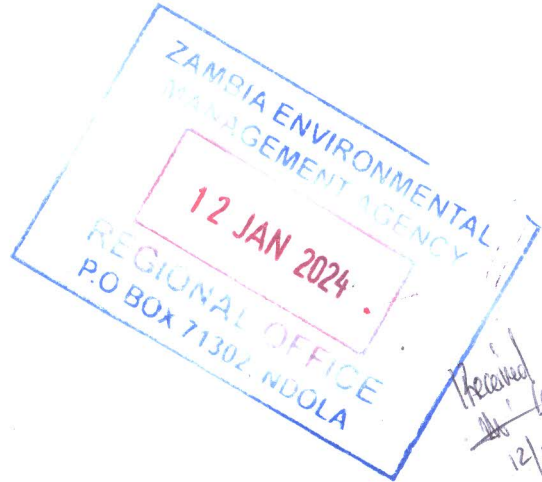 ZAMBIA ENVIRONMENTAL
MANAGEMENT AGENCY
12 JAN 2024
REGIONAL OFFICE
P.O BOX 71302, NDOLA
Received
12/